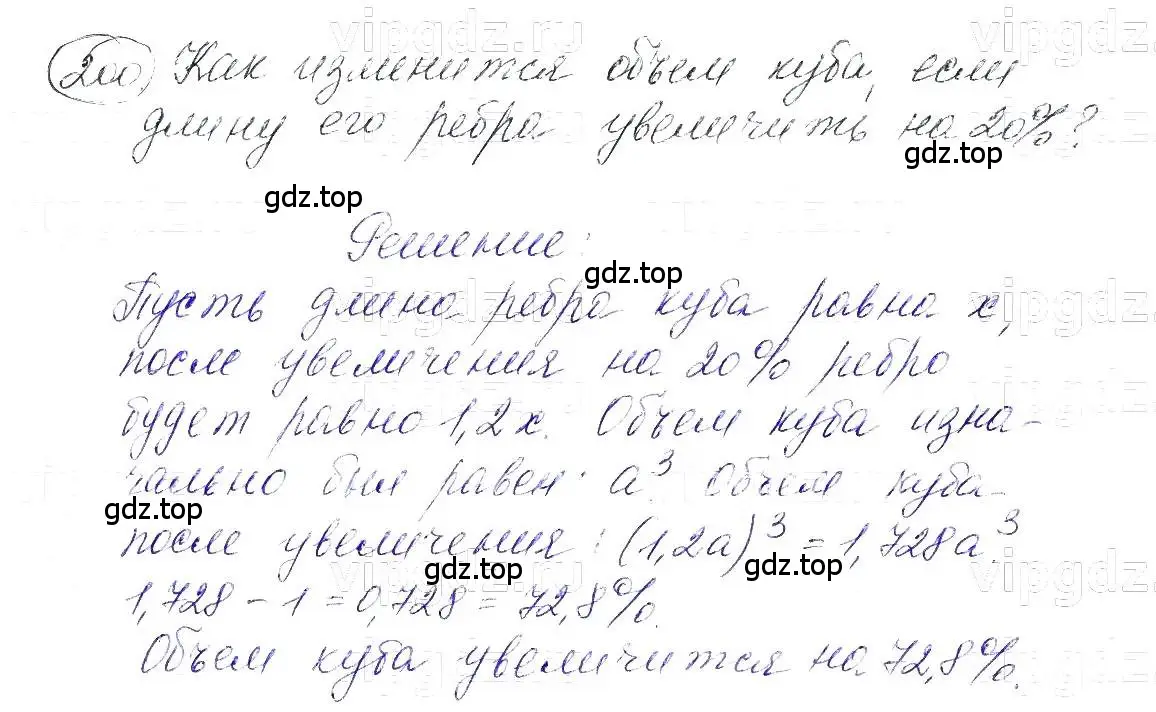 200. Как изменится объем куба, если
длину его ребра увеличить на 20%?
gdz.top
gdz.top
Решение:
gdz.top
Пусть длина ребра куба равна x,
после увеличения на 20% ребро
будет равно 1,2x. Объем куба изна-
чально был равен: a³. Объем куба
gdz.top
после увеличения: (1,2a)³ = 1,728a³.
gdz.top
gdz.top
1,728 - 1 = 0,728 = 72,8%.
Объем куба увеличится на 72,8%.